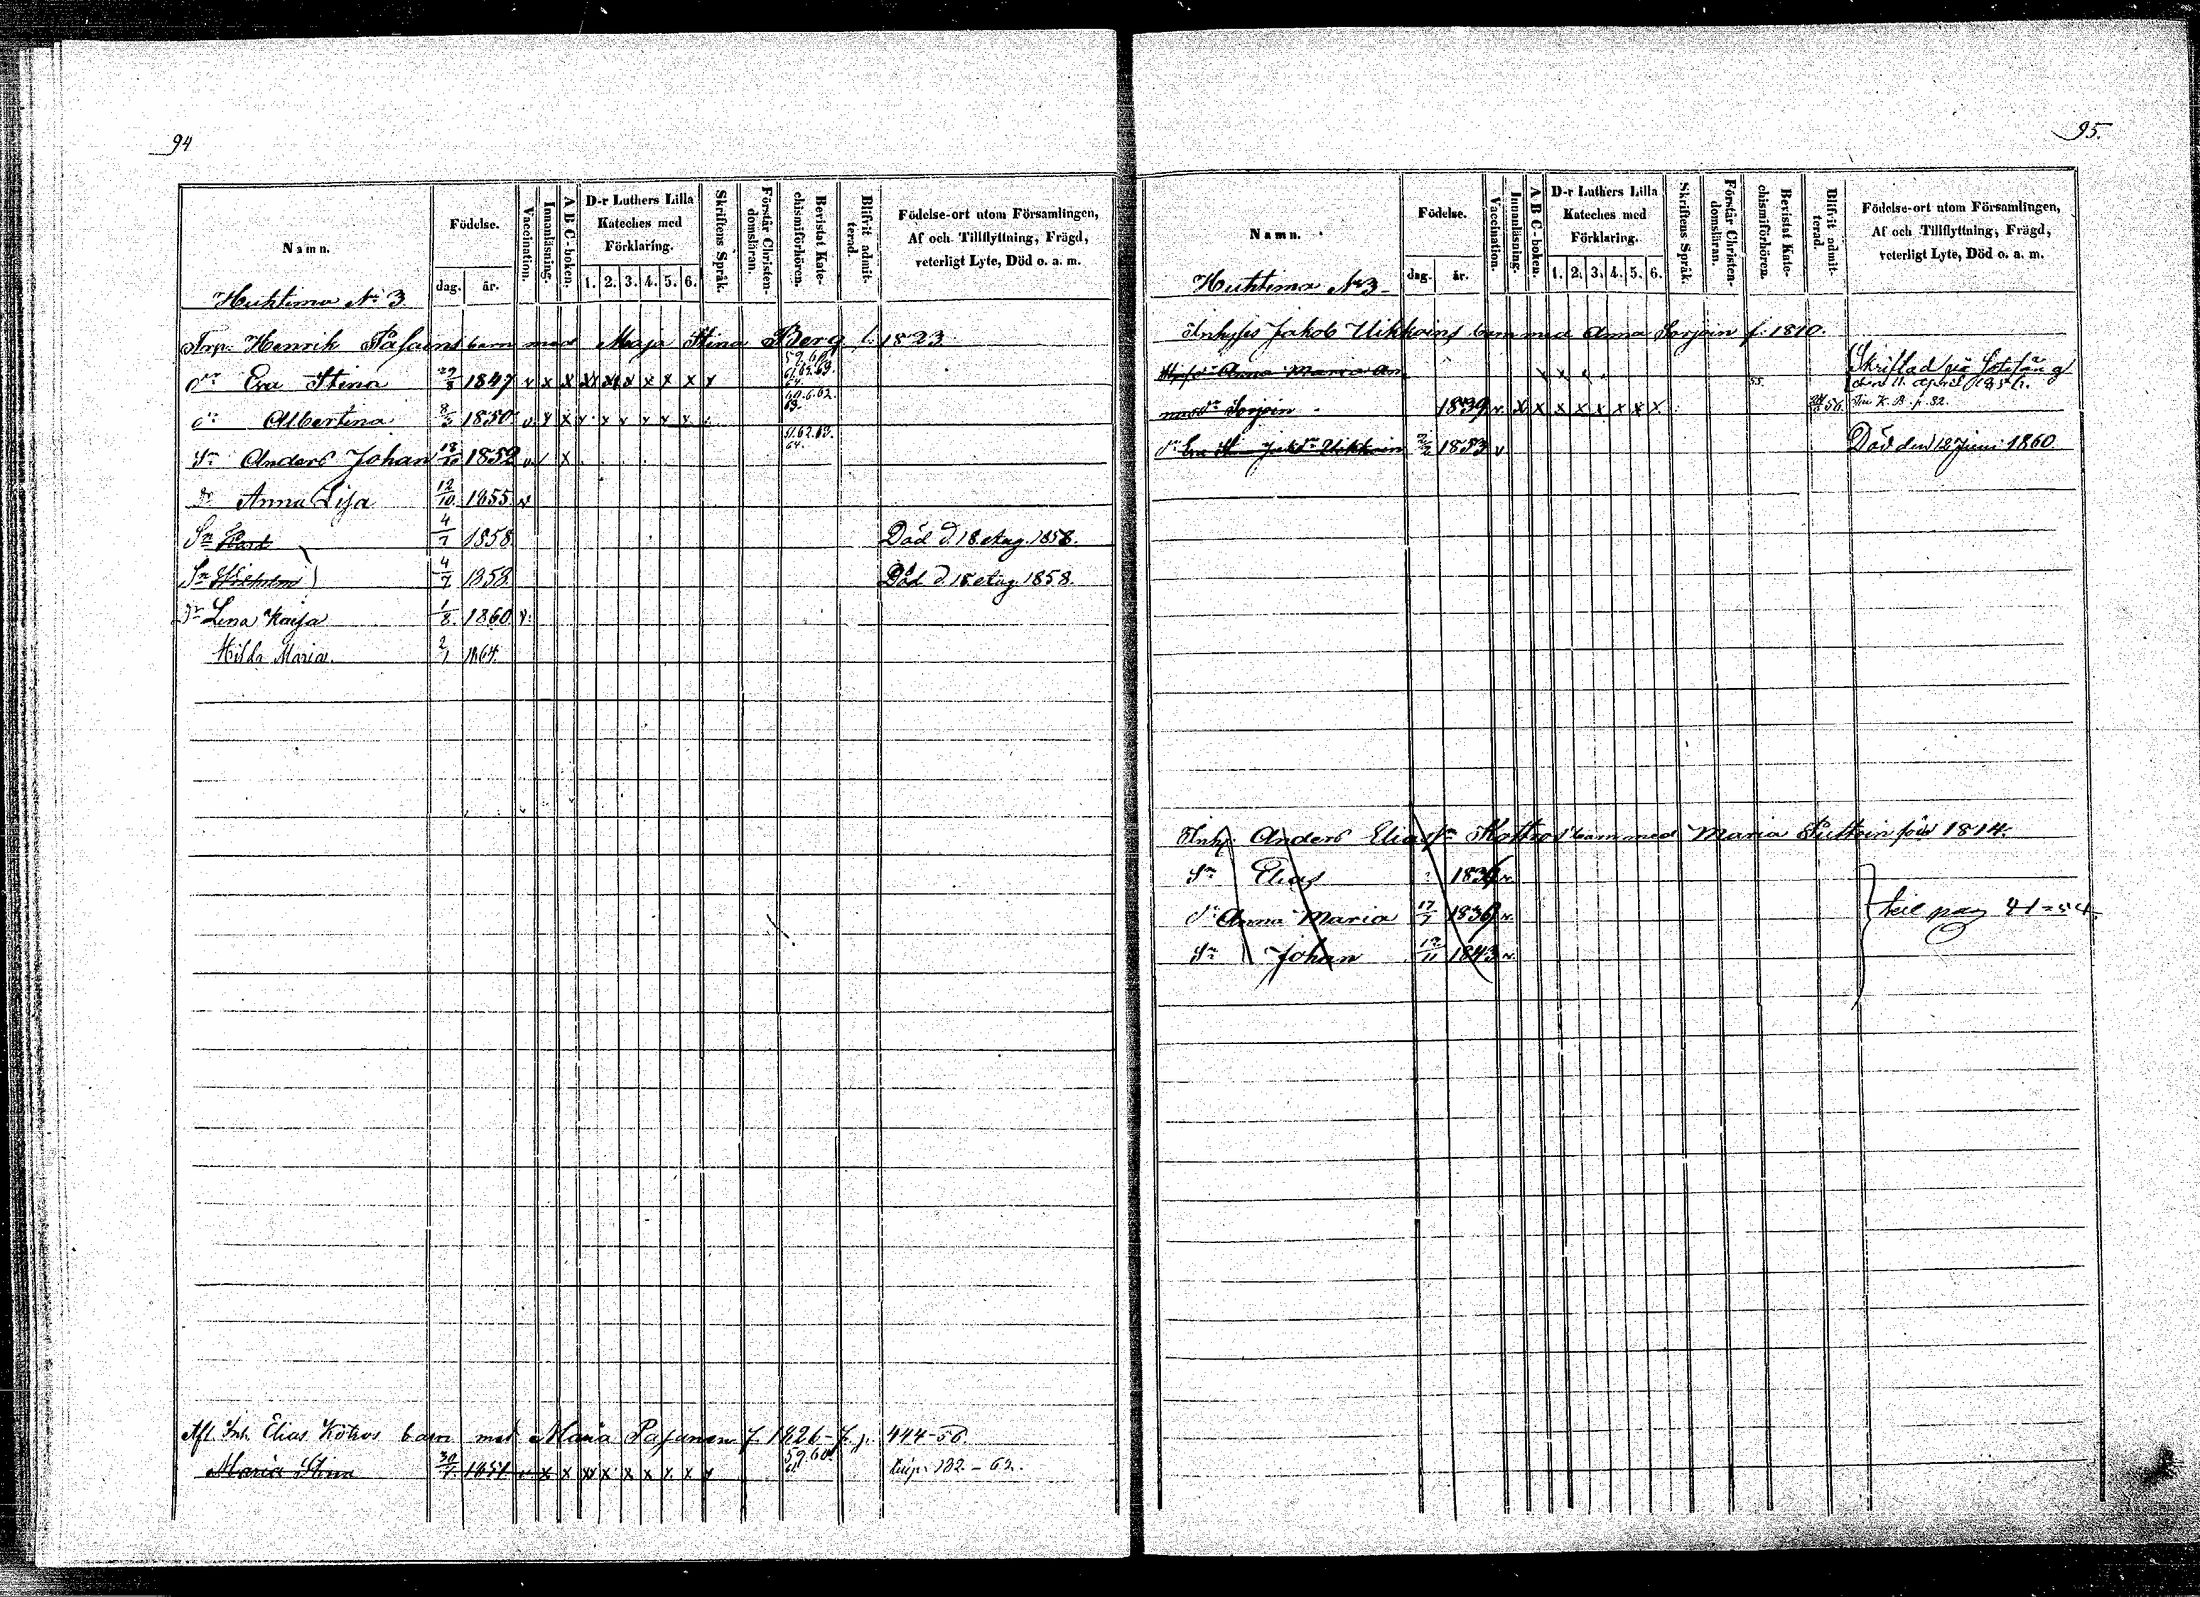 94
Namn.
Födelse.
dag.
år.
Vaccination.
Innanläsning.
A B C-boken.
D-r Luthers Lilla
Kateches med
Förklaring.
1. 2. 3. 4. 5. 6.
Skriftens Språk.
Förstår Christen-
domsläran.
Bevistat Kate-
chismiförhören.
Blifvit admit-
terad.
Födelse-ort utom Församlingen,
Af och Tillflyttning, Frägd,
veterligt Lyte, Död o. a. m.
Huhtima No 3.
Henrik barn med Maja Stina Berg f. 1823
dr Eva Stina 29/8 1847 v x x x x x x x x x 59. 60. 61. 62. 63. 64.
dr Albertina 8/3 1850 v x x
Sn Anders Johan 1852 v / x 61. 62. 63. 64.
dr Anna Lisa 12/10 1855 v
Sn 4/7 1858 Död d. 18 Aug. 1858.
Sn 4/7 1858 Död d. 18 Aug 1858.
dr Lena Kaisa 1/8 1860 v
Hilda Maria 2/1 1864.
Afl. Inh. Elias Kötros barn med Maria Pasanen f. 1826 - 444-56.
Maria Stina 30/7 1851 v x x x x x x x x x 59. 60. 61 132 - 62.
95.
Namn.
Födelse.
dag.
år.
Vaccination.
Innanläsning.
A B C-boken.
D-r Luthers Lilla
Kateches med
Förklaring.
1. 2. 3. 4. 5. 6.
Skriftens Språk.
Förstår Christen-
domsläran.
Bevistat Kate-
chismiförhören.
Blifvit admit-
terad.
Födelse-ort utom Församlingen,
Af och Tillflyttning, Frägd,
veterligt Lyte, Död o. a. m.
Huhtima No 3
Inhyses Jakob Uikkoins barn med Anna Sorjoin f. 1810.
Anna Maria An Skriftad
den 11 April
Sorjoin 1839 v x x x x x x x x 55. 56
dr Eva Jakdr Uikkoin 1853 v Död den 12 Juni 1860
Inh. Anders Eliass barn med Maria född 1814.
Sn Elias
dr Anna Maria 17/7 v
Sn Johan 1843 v
pag 41-54